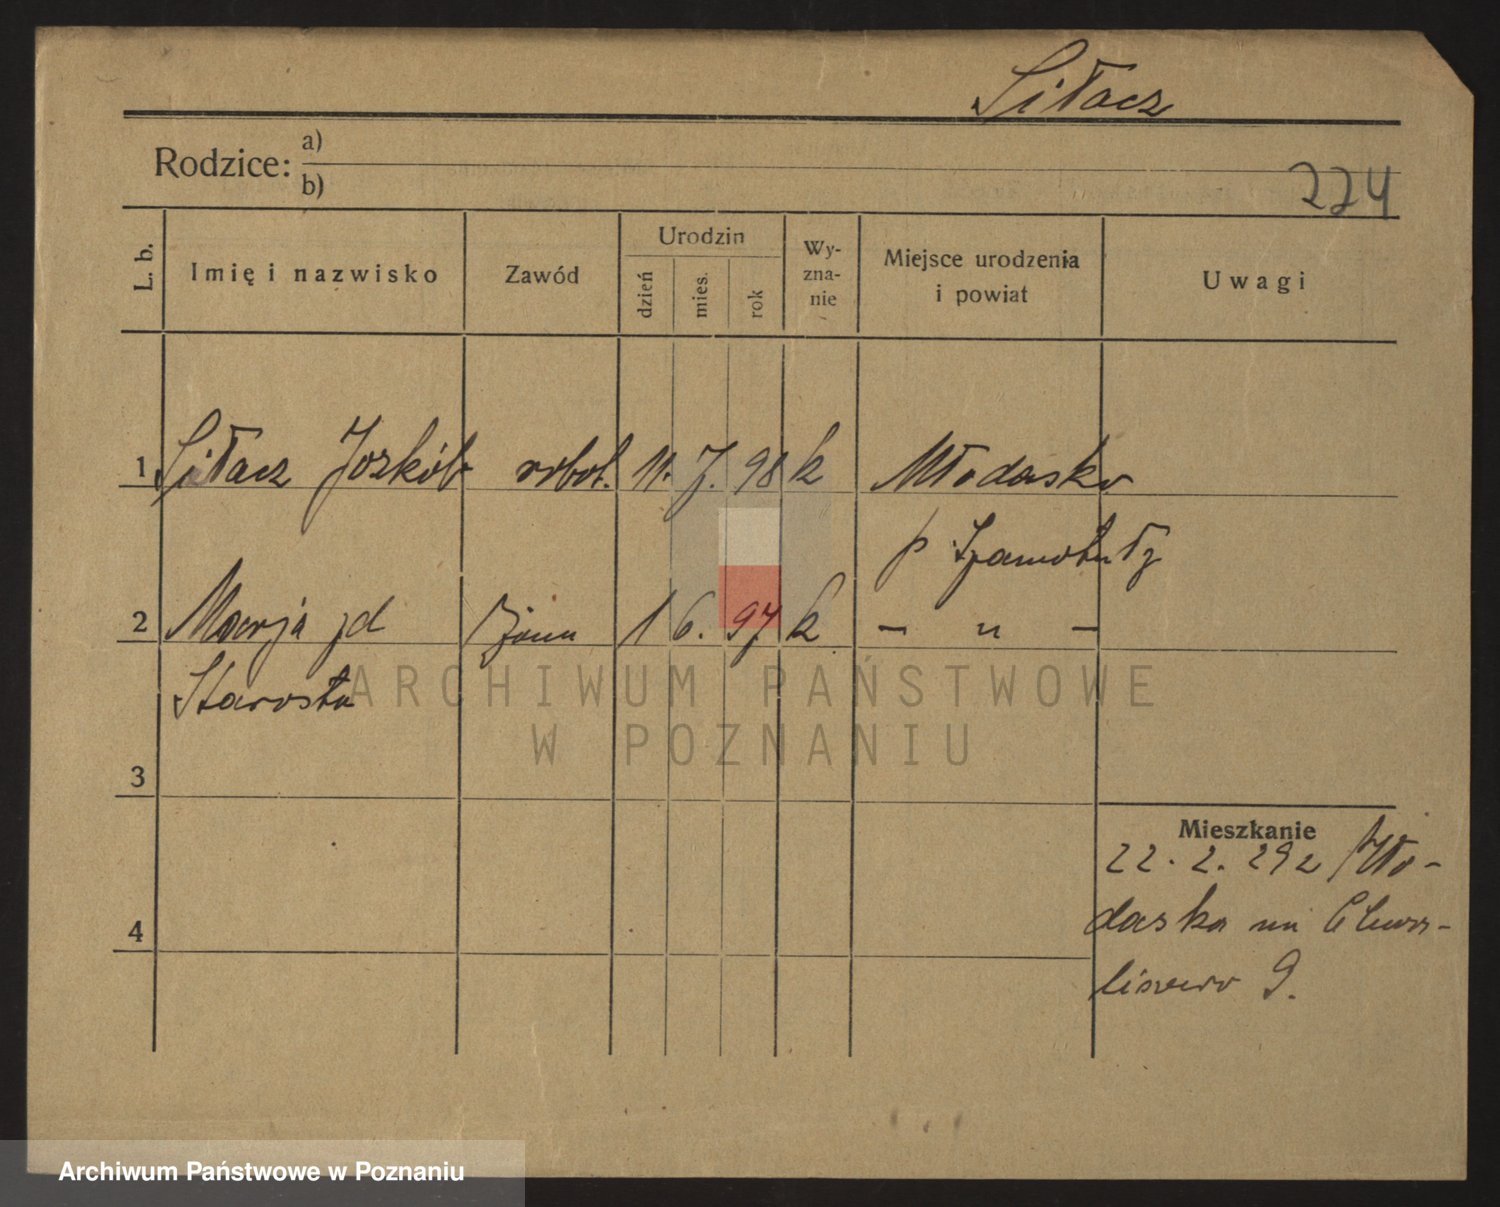 Siłacz
Rodzice: a)
b)
224
L. b.
Imię i nazwisko
Zawód
Urodzin
dzień
mies.
rok
Wy-
zna-
nie
Miejsce urodzenia
i powiat
Uwagi
1 Siłacz robot. 11. 7. 98 k Młodasko
p Szamotuły
2 Marja żona 1 6. 97 k — „ —
Starosta
ARCHIWUM PAŃSTWOWE
W POZNANIU
3
Mieszkanie
22. 2. 29 z Mło-
4 daska
9.
Archiwum Państwowe w Poznaniu